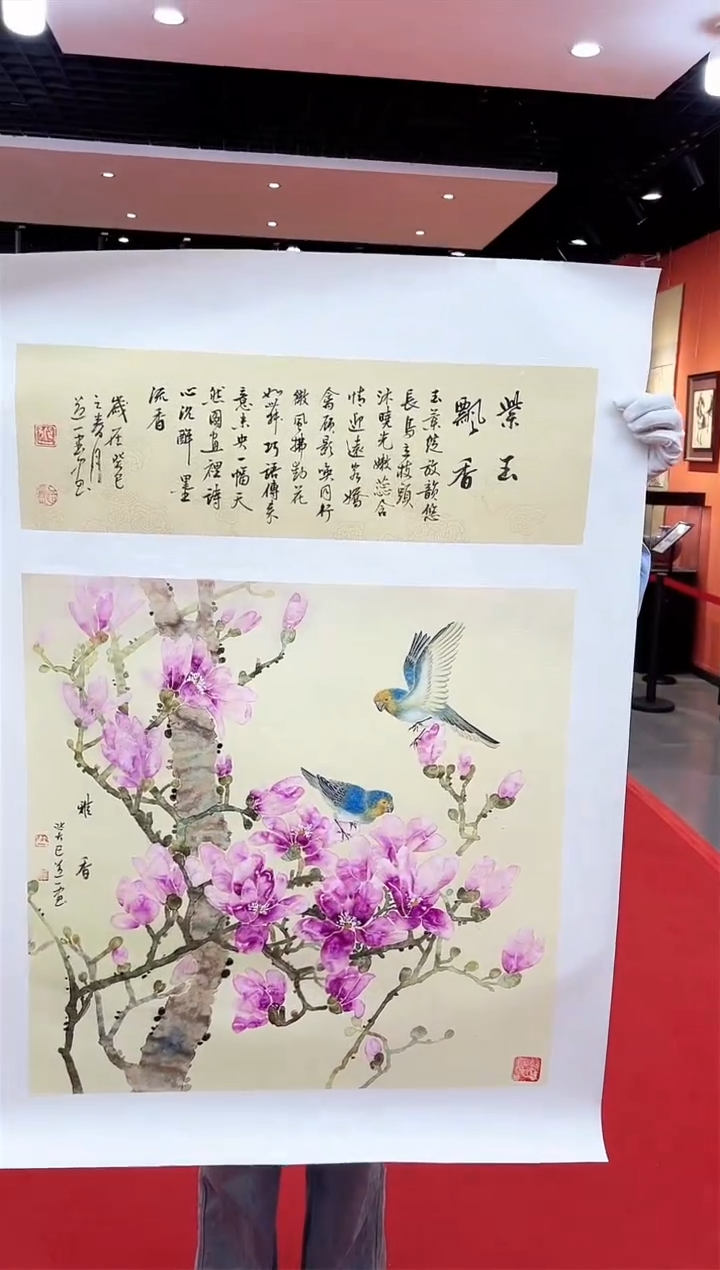 紫玉
飄香
玉蘭綻放韻悠
長鳥立枝頭
沐曉光嫩蕊含
情迎遠客嬌
禽顧影喚同行
微風拂動花
如舞巧語傳來
意未央一幅天
然圖畫裡詩
心沉醉墨
流香
歲在癸巳
之春月
道一書
雅香
癸巳道一画